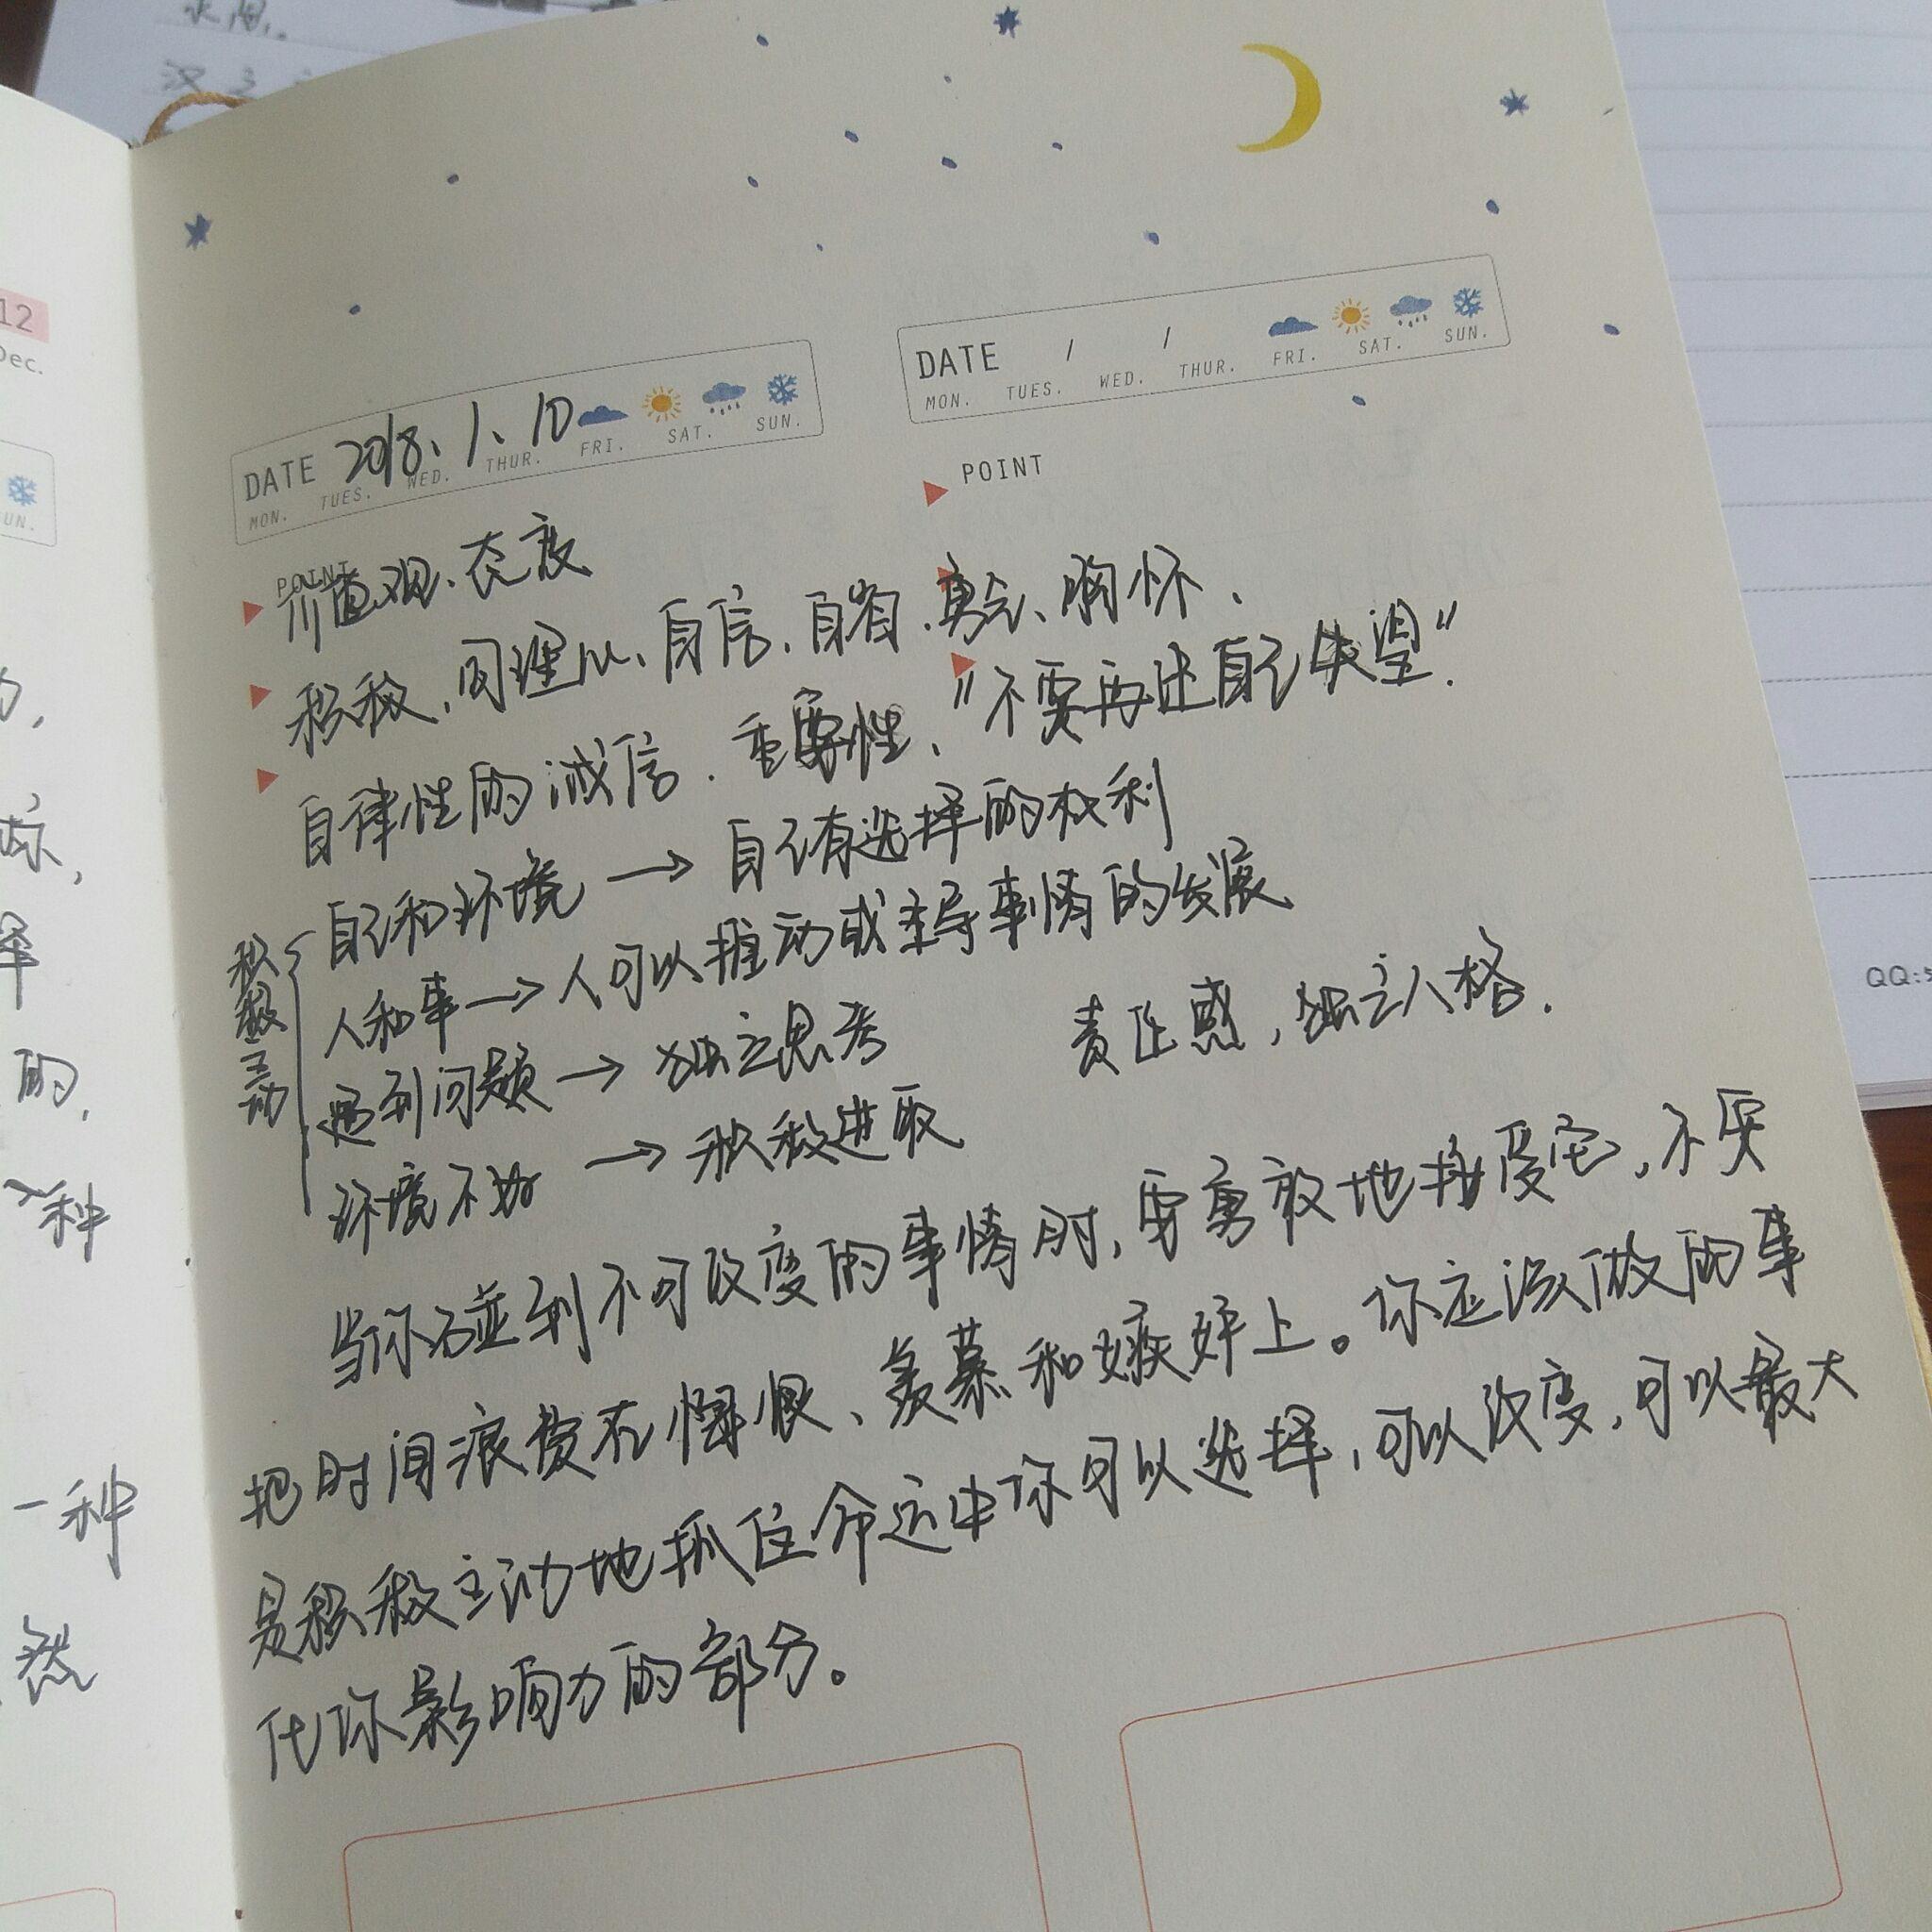 永恒.
12
Dec.
UN.
DATE 2018、1、10
MON. TUES. WED. THUR. FRI. SAT. SUN.
DATE / /
MON. TUES. WED. THUR. FRI. SAT. SUN.
POINT
POINT
价值观、态度
积极、同理心、自信、自省、勇气、胸怀、
自律性的诚信.重要性、"不要再让自己失望".
积极主动
自己和环境→自己有选择的权利
人和事→人可以推动或主导事情的发展
遇到问题→独立思考 责任感,独立人格.
环境不好→积极进取
当你碰到不可改变的事情时,要勇敢地接受它,不要
把时间浪费在悔恨、羡慕和嫉妒上。你应该做的事
是积极主动地抓住命运中你可以选择,可以改变,可以最大
化你影响力的部分。
的,
一种
然
QQ:5